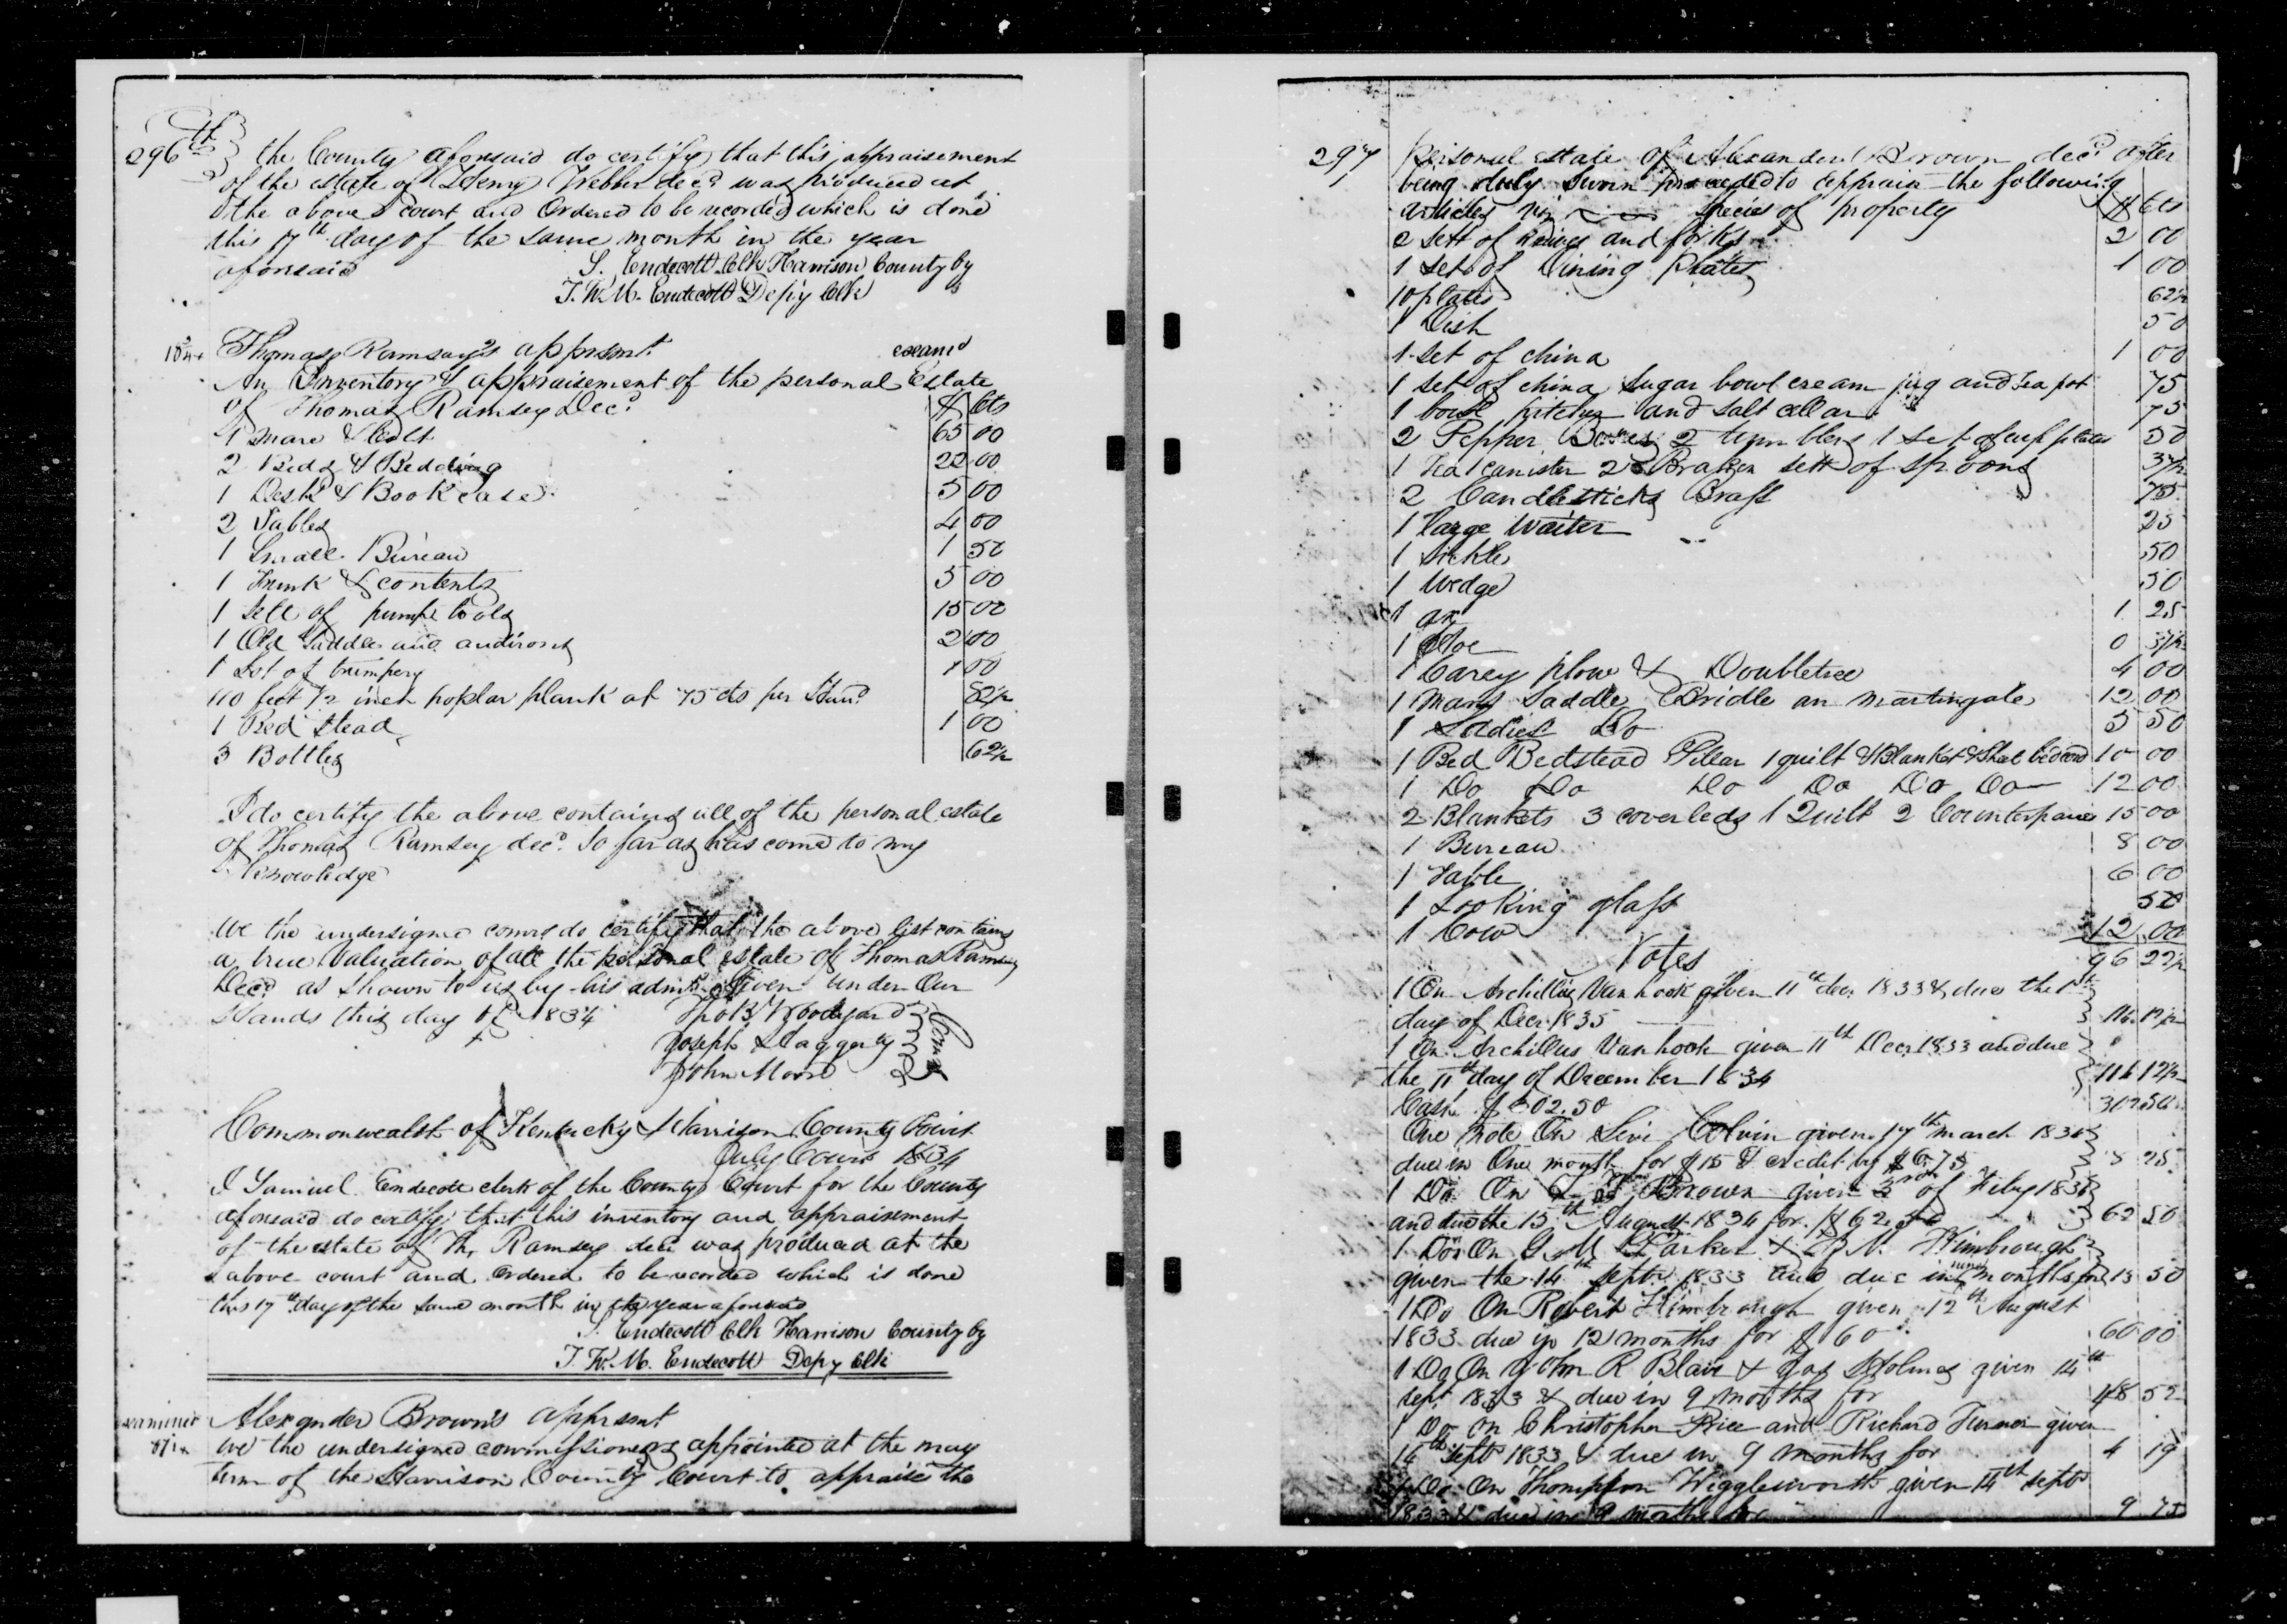 296th the County aforesaid do certify that this appraisement
of the estate of Henry Webber decd was produced at
the above court and Ordered to be recorded which is done
this 17th day of the same month in the year
aforesaid
S. Endecott Clk Harrison County by
T. W. M. Endecott Depy Clk
Thomas Ramsay's apprsmt. examd
An Inventory & appraisement of the personal Estate
of Thomas Ramsey Decd $ Cts
1 Mare & Colt 65 00
2 Beds & Bedding 22 00
1 Desk & Book case 5 00
2 Tables 4 00
1 Small Bureau 1 50
1 Trunk & contents 3 00
1 Sett of pump tools 15 00
1 Old Saddle and andirons 2 00
1 Lot of trumpery 1 00
110 feet 1/2 inch poplar plank at 75 cts per Hund 82 1/2
1 Bed Stead 1 00
3 Bottles 62 1/2
I do certify the above contains all of the personal estate
of Thomas Ramsey decd So far as has come to my
Knowledge
We the undersigned comrs do certify that the above list contains
a true Valuation of all the personal estate of Thomas Ramsey
Decd as Shown to us by his admr Given under Our
Hands this day of 1834 Tho B Woodyard
Joseph Haggerty
John Moore
Comrs
Commonwealth of Kentucky Harrison County Court
July Court 1834
I Samuel Endecott clerk of the County Court for the County
aforesaid do certify that this inventory and appraisement
of the estate of Th. Ramsey decd was produced at the
above court and Ordered to be recorded which is done
this 17th day of the same month in the year aforesaid
S. Endecott Clk Harrison County by
T. W. M. Endecott Depy Clk
examined Alexander Brown's apprsmt
We the undersigned commissioners appointed at the may
term of the Harrison County Court to appraise the
297 Personal estate of Alexander Brown decd after
being duly Sworn proceeded to appraise the following
articles viz Species of property $ Cts
2 Sett of knives and forks 2 00
1 Set of Dining Plates 1 00
10 plates 62 1/2
1 Dish 50
1 Set of china 1 00
1 Set of china Sugar bowl cream jug and Tea pot 75
1 bowl pitcher and Salt cellar 75
2 Pepper Boxes 2 tumblers 1 Set of cup plates 50
1 Tea canister 2 Broken sett of Spoons 37 1/2
2 Candlesticks Brass 75
1 large Waiter 25
1 Sickle 50
1 Wedge 50
1 ax 1 25
1 Hoe 0 37 1/2
1 Carey plow & Doubletree 4 00
1 Mans Saddle Bridle an Martingale 12 00
1 Ladies Do 5 50
1 Bed Bedstead Pillar 1 quilt & Blanket & Sheet bed cord 10 00
1 Do Do Do Do Do Do 12 00
2 Blankets 3 coverleds 1 Quilt 2 Counterpanes 15 00
1 Bureau 8 00
1 Table 6 00
1 Looking glass 50
1 Cow 12 00
Notes 96 22 1/2
1 On Archillus Van hook given 11th dec 1833 & due the 11th
day of Decr 1835 116 12 1/2
1 On Archillus Vanhook given 11th Decr 1833 and due
the 11th day of December 1834 116 12 1/2
Cash $302.50 302.50
One Note On Levi Colvin given 17th march 183
due in One month for $15 & credit by $6.75 8 25
1 Do On Brown given 3rd of Feby 183
and due the 15th August 1834 for $62.50 62 50
1 Do On G. M Parker & N. Kimbrough
given the 14th Septr 1833 and due in nine months for 13 50
1 Do On Robert Kimbrough given 12th August
1833 due in 12 months for $60 60 00
1 Do On John R Blair & Jas Holmes given 14th
Sept 1833 & due in 9 months for 48 52
1 Do On Christopher Price and Richard Turner given
14th Sept 1833 & due in 9 months for 4 19
1 Do On Thompson Wigglesworth given 14th Septr
1833 & due in 9 months for 9 75